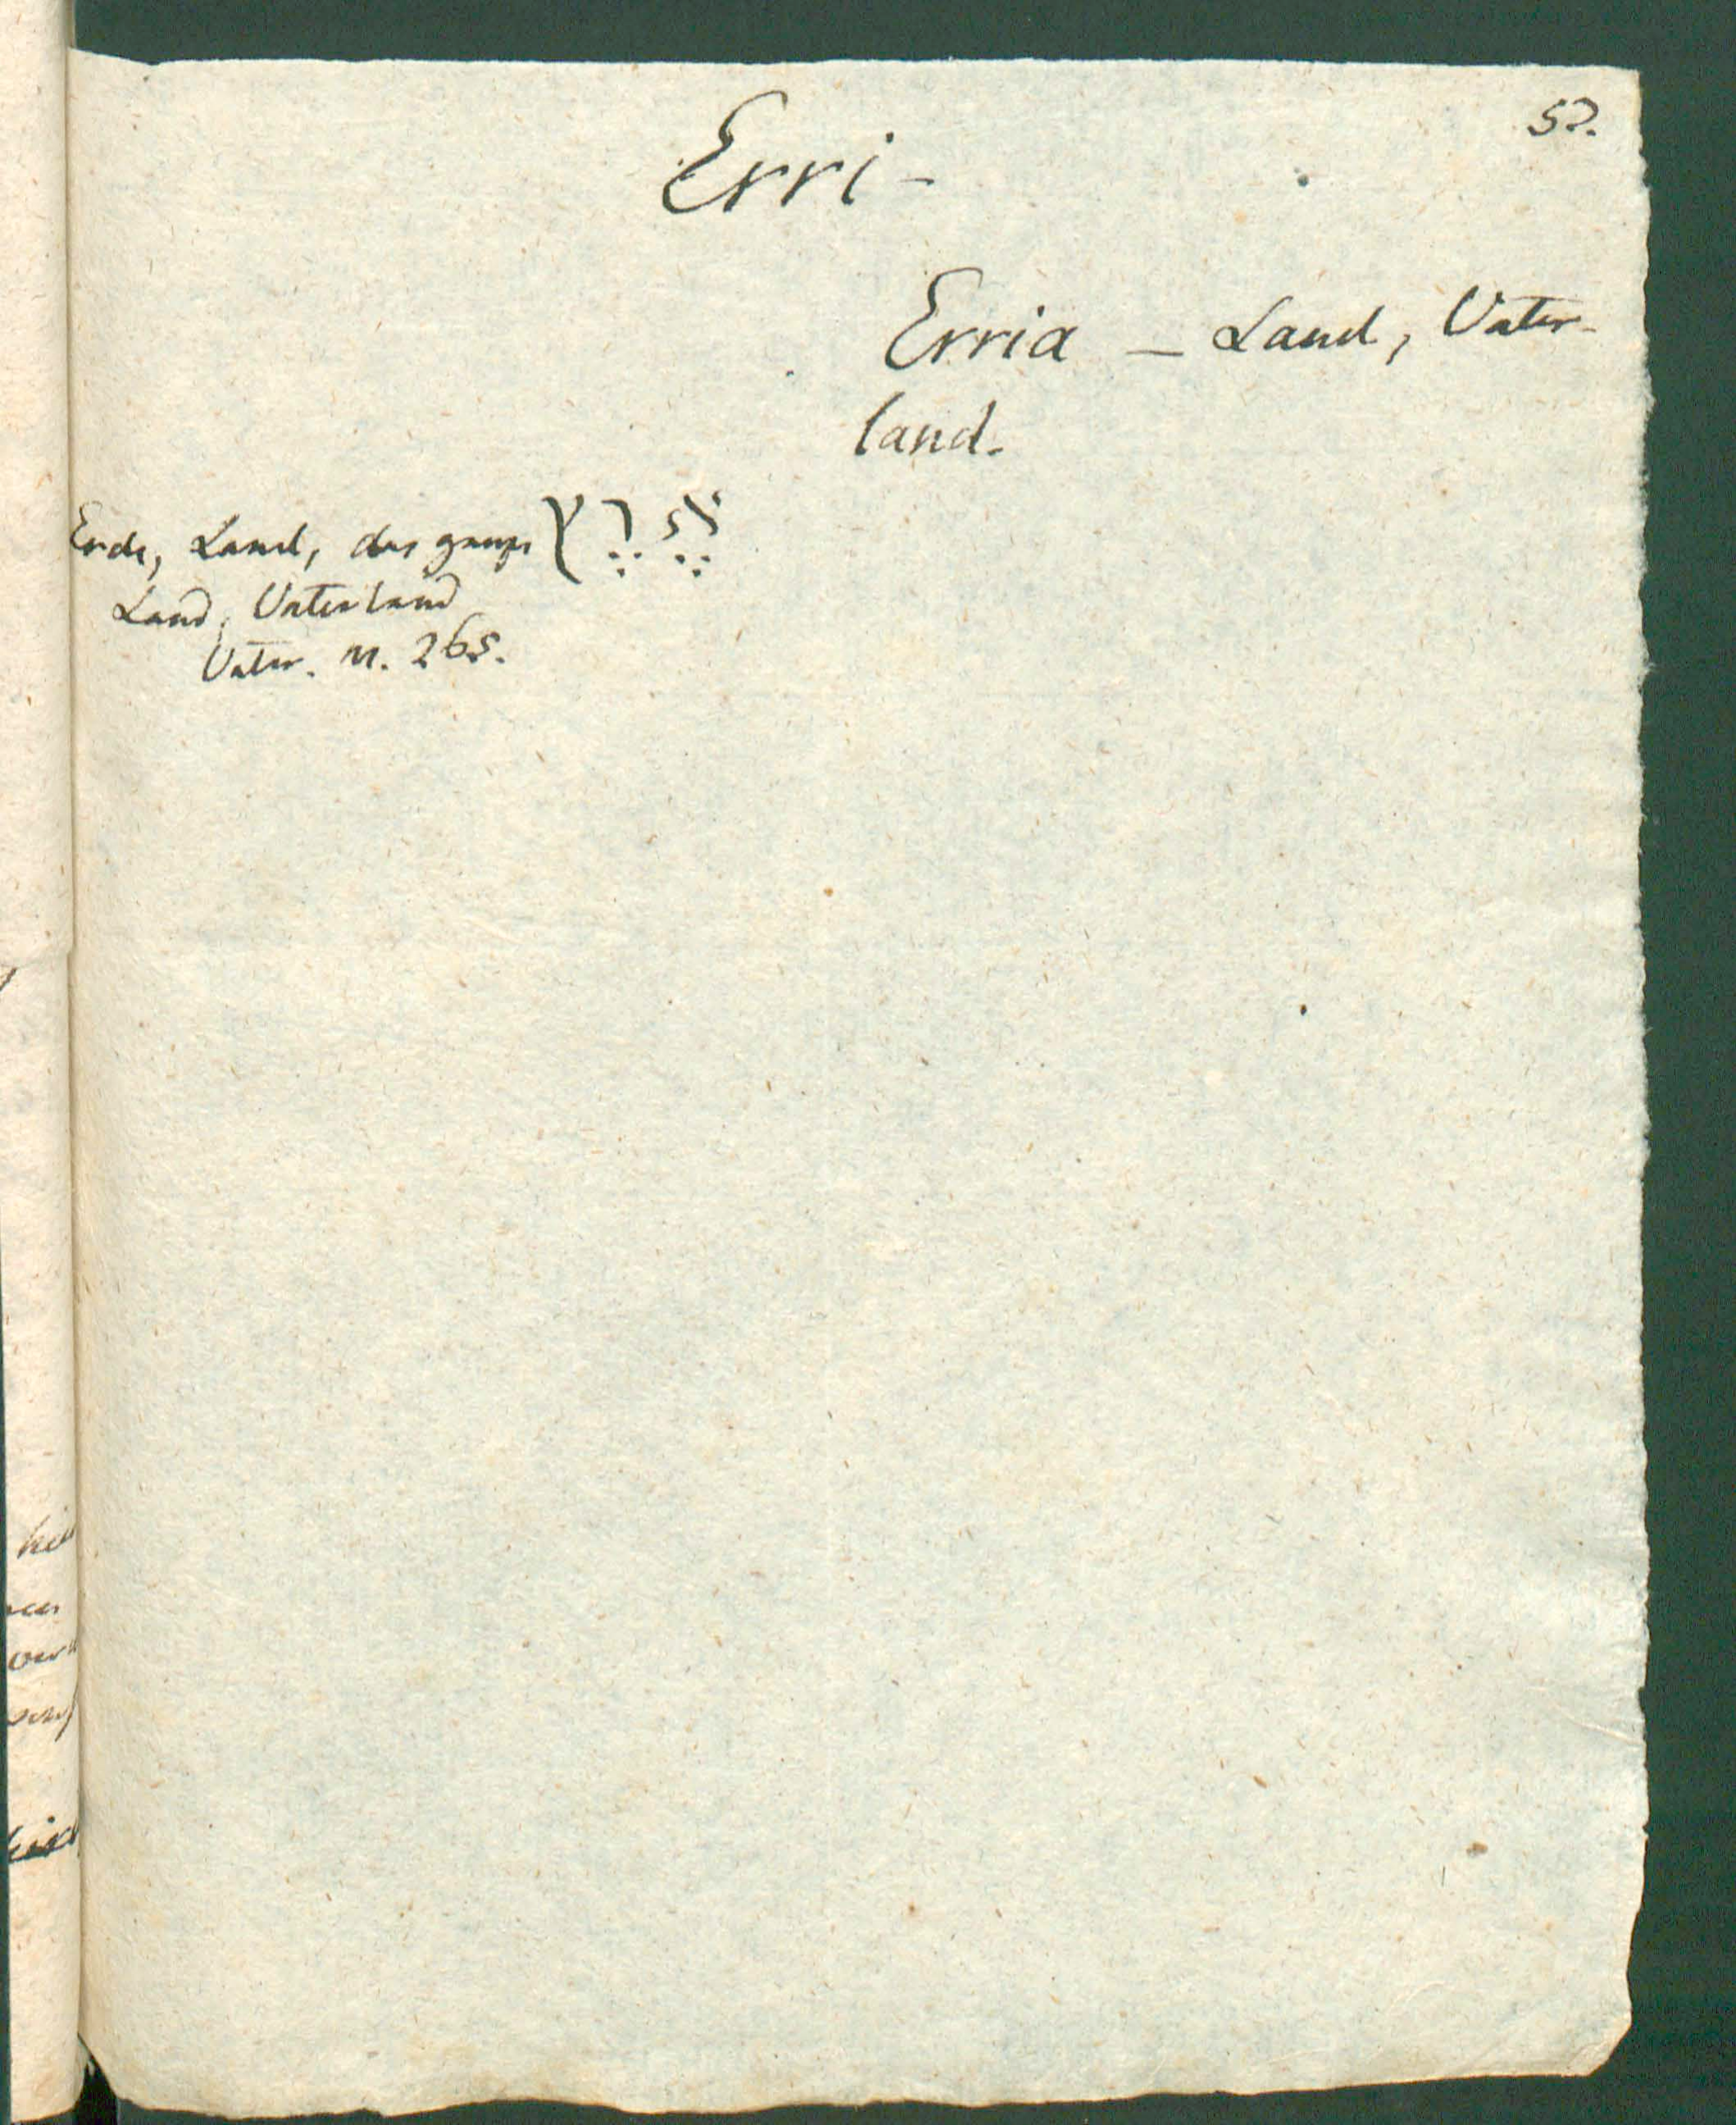 52.
Erri-
Erria – Land, Vater-
land.
Erde, Land, das ganze אֶרֶץ
Land, Vaterland
Vater. n. 265.